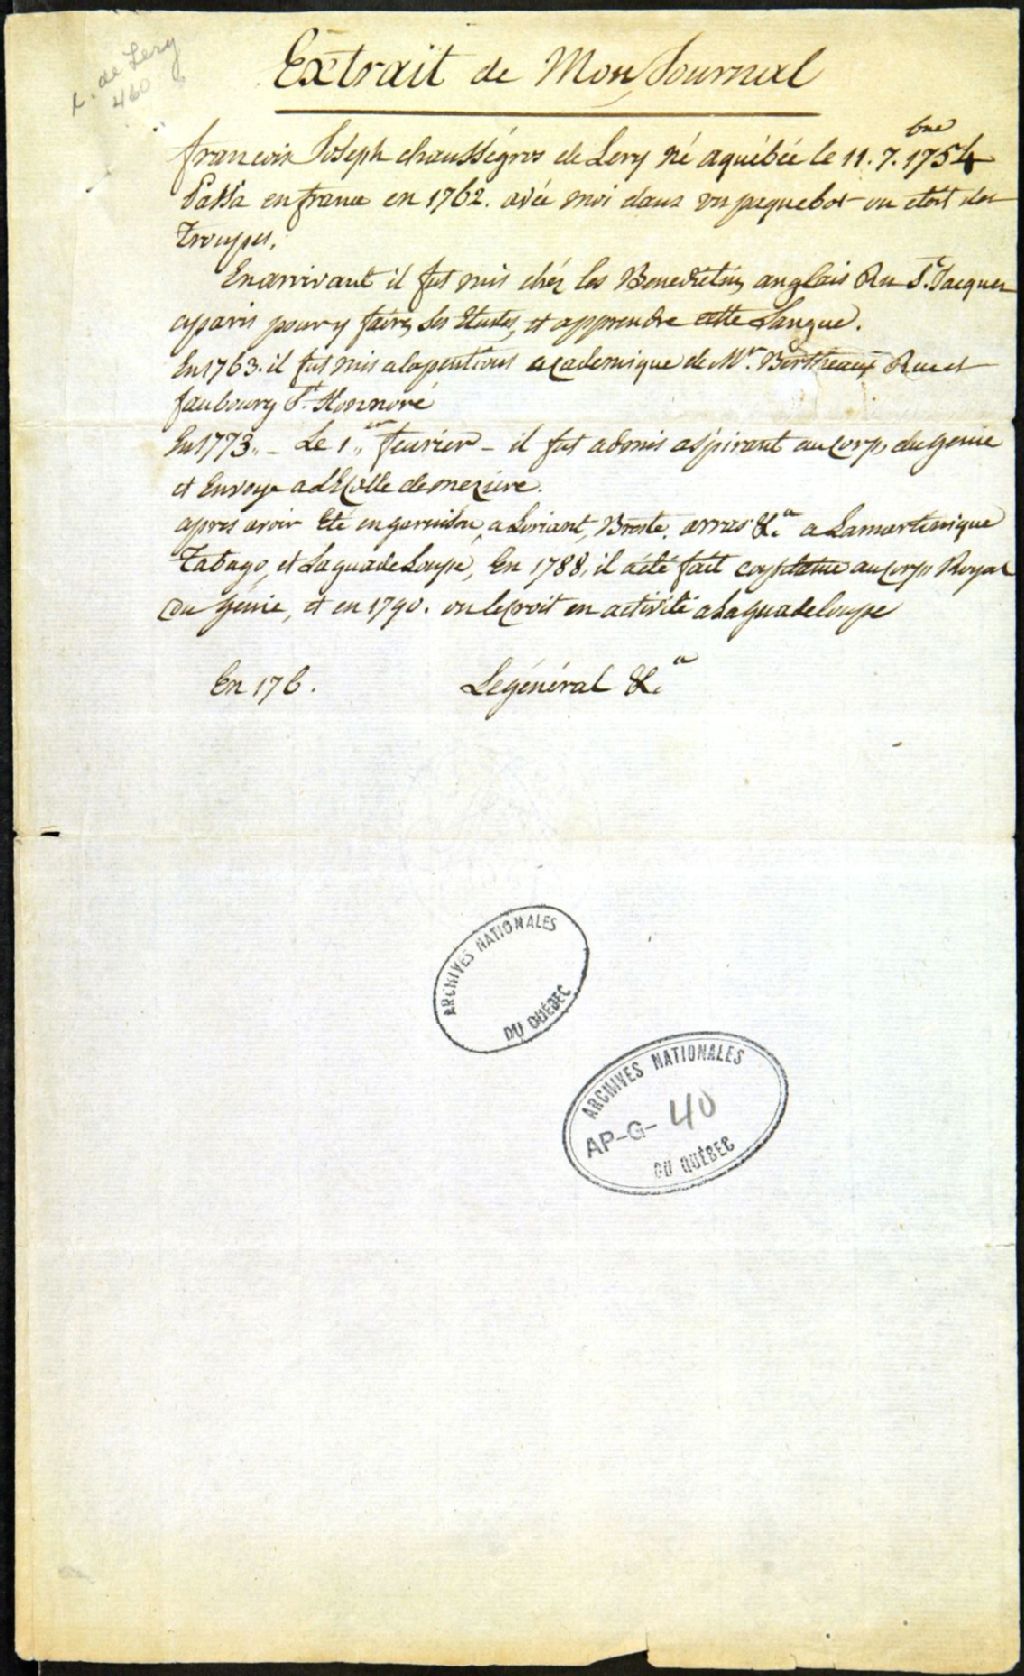 L. de Lery
460
Extrait de Mon Journal
francoix Joseph chausségros de Lery né aquébéc le 11. 7.bre 1754
Passa en france en 1762. avéc moi dans un paquebot ou etoit des
Troupes.
En arrivant il fut mis chéz les Benedictins anglais Rue St. Jacques
aparis pour y faire ses Etudes, et apprendre cette Langue.
En 1763. il fut mis alapention academique de Mr. Bertheaux Rue et
faubourg St. Honnoré
En 1773,, - Le 1,,er feurier - il fut admis aspirant au Corps du genie
et Envoyé a dEcolle de meziere.
apres avoir Eté en garnison, a Loriant, Breste, arras &.a a Lamartinique
Tabago, et Laguadeloupe, En 1788, il a été fait capitaine au Corps Royal
du Génie, et en 1790. on le croit en activité a Laguadeloupe
En 176. Le général &.a
ARCHIVES NATIONALES
DU QUÉBEC
ARCHIVES NATIONALES
AP-G- 40
DU QUÉBEC